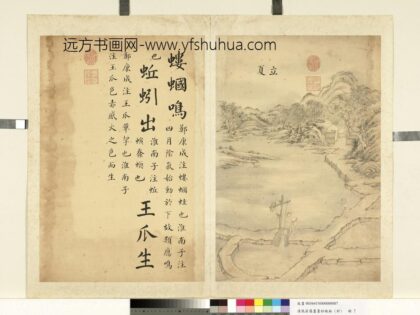 远方书画网-www.yfshuhua.com
立
夏
螻蟈鳴
鄭康成注螻蟈蛙也淮南子注
四月陰氣始動於下故類應鳴
也
蚯蚓出
淮南子注蚯
王瓜生
鄭康成注王瓜萆挈也淮南子
注王瓜色赤感火之色而生